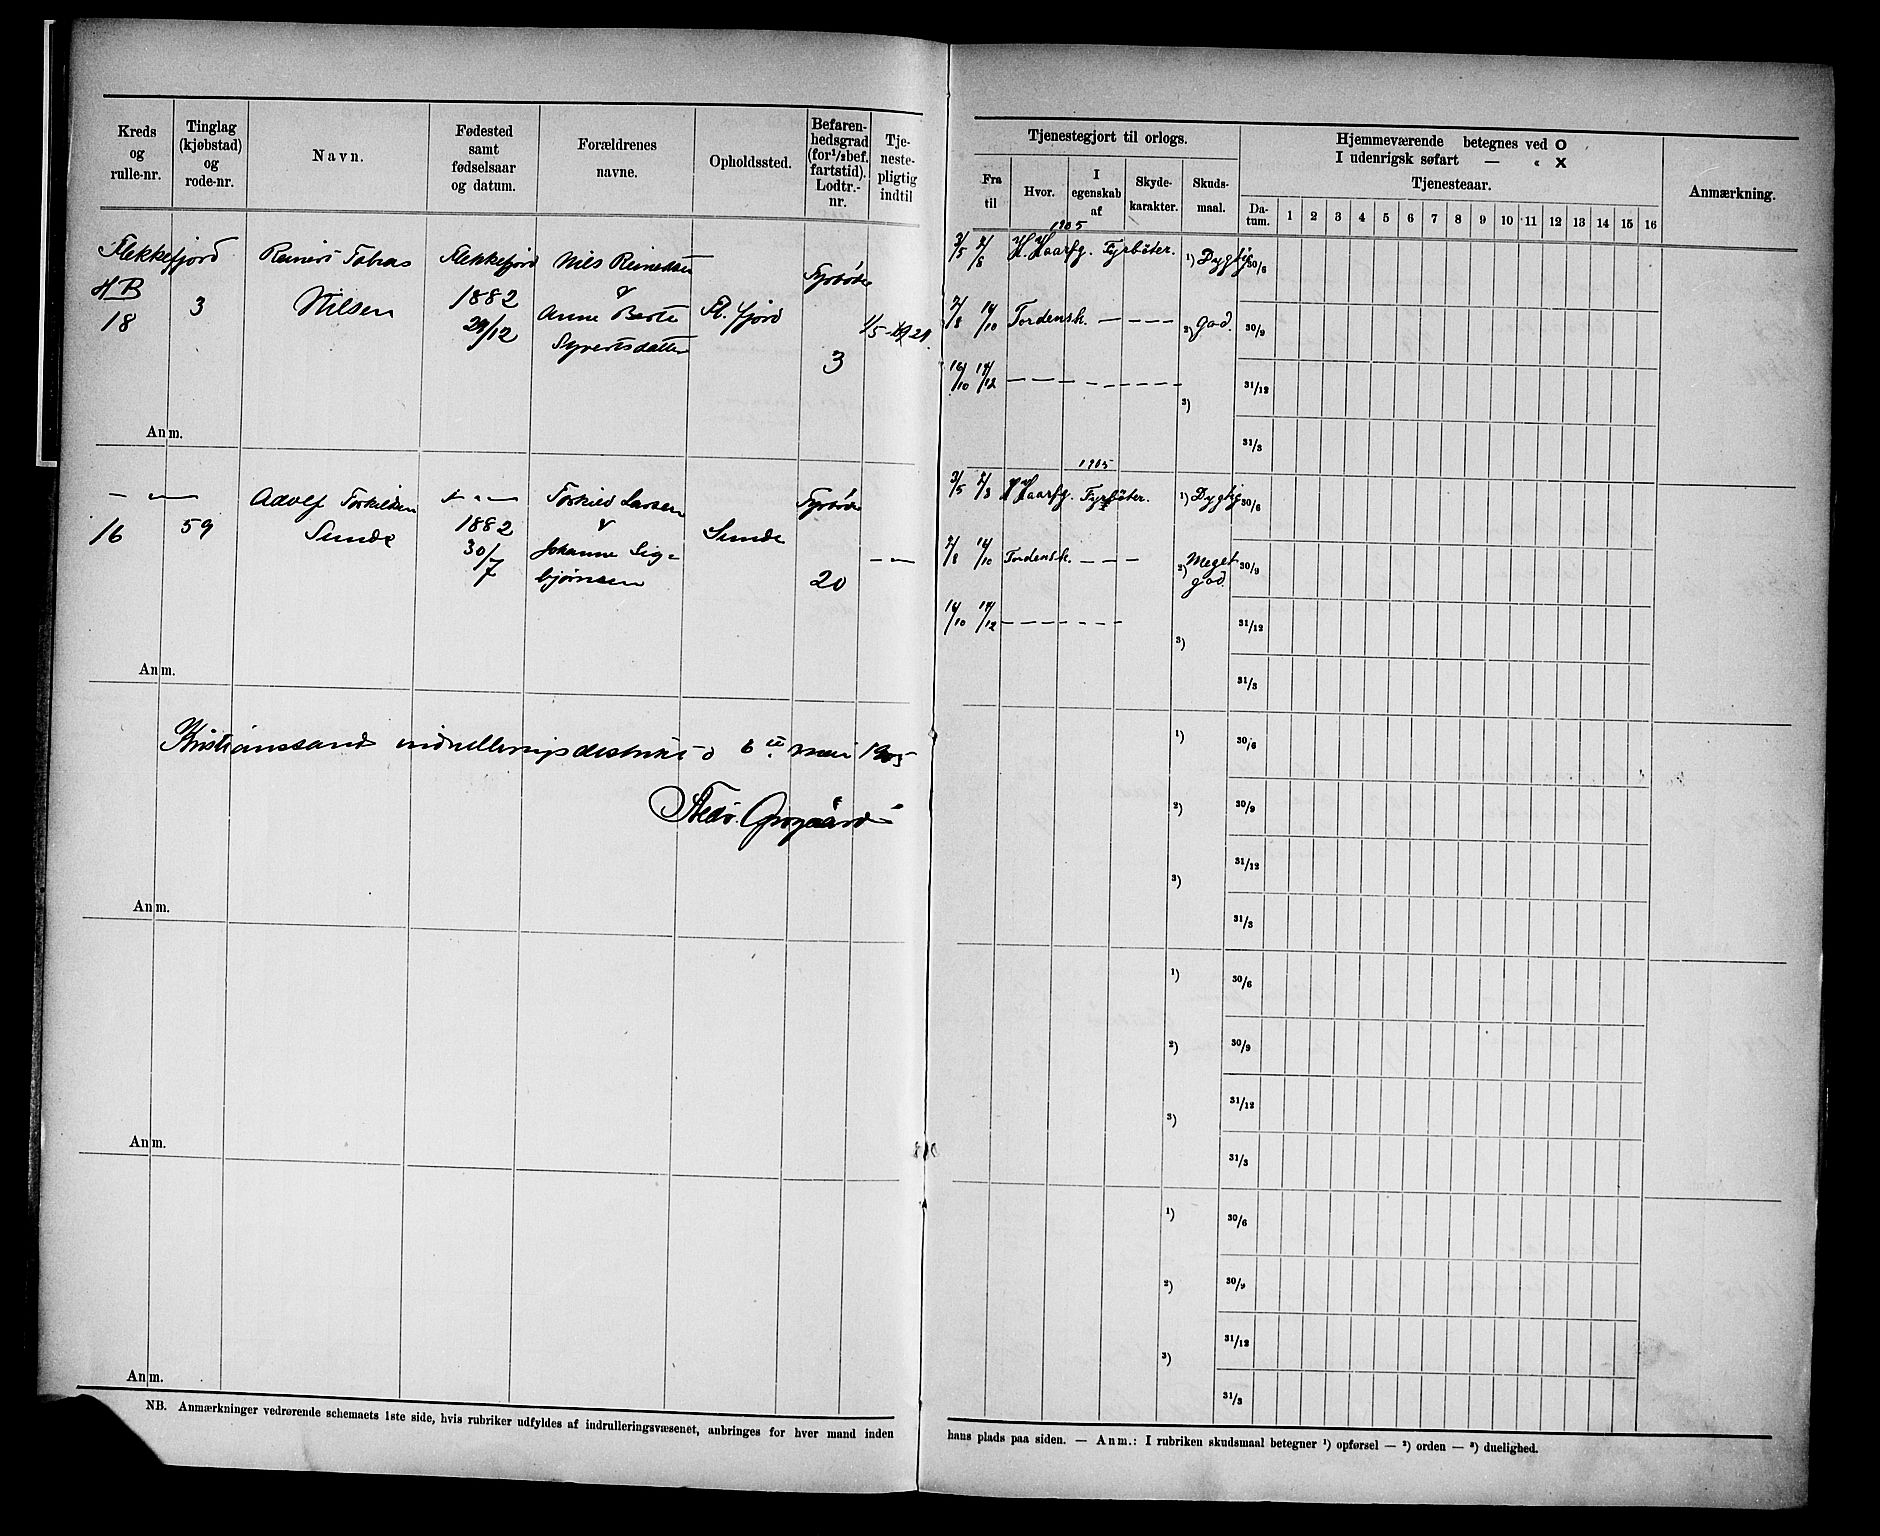 Kreds og rulle-nr.
Tinglag (kjøbstad) og rode-nr.
Navn.
Fødested samt fødselsaar og datum.
Forældrenes navne.
Opholdssted.
Befaren-hedsgrad (for ½ bef. fartstid). Lodtr.-nr.
Tje-neste-pligtig indtil
Tjenestegjort til orlogs.
Fra til
Hvor.
I egenskab af
Skyde-karakter.
Skuds-maal.
Hjemmeværende betegnes ved O
I udenrigsk søfart — « X
Tjenesteaar.
Da-tum. 1 2 3 4 5 6 7 8 9 10 11 12 13 14 15 16
Anmærkning.
Flekkefjord
18
3
Tobias
Nilsen
Flekkefjord
1882
29/12
Niels
&
Anne
Syvertsdatter
Fl. fjord
Fyrbøder
3
1905
3/5 2/8 H. Haarfg. Fyrbøter. 1) Dygtig 30/6
2/8 14/10 Tordensk. — — — 2) god. 30/9
16/10 14/12 — — — — — — — 31/12
3)
31/3
Anm.
— „ —
16
59
Adolf Torkildsen
Sunde
— „ —
1882
30/7
Torkild Larsen
&
Johanne Sig=
bjørnsen
Sunde
Fyrbøder
20
— „ —
1905
3/5 2/8 H Haarfg. Fyrbøter. 1) Dygtig 30/6
2/8 14/10 Tordensk. — — — 2) Meget god. 30/9
16/10 14/12 — — — — — — 31/12
3)
31/3
Anm.
Kristianssands indrulleringsdistrikt d 6te mai 1905
1) 30/6
2) 30/9
31/12
3)
31/3
Anm.
1) 30/6
2) 30/9
31/12
3)
31/3
Anm.
1) 30/6
2) 30/9
31/12
3)
31/3
Anm.
NB. Anmærkninger vedrørende schemaets 1ste side, hvis rubriker udfyldes af indrulleringsvæsenet, anbringes for hver mand inden
hans plads paa siden. — Anm.: I rubriken skudsmaal betegner ¹) opførsel — ²) orden — ³) duelighed.